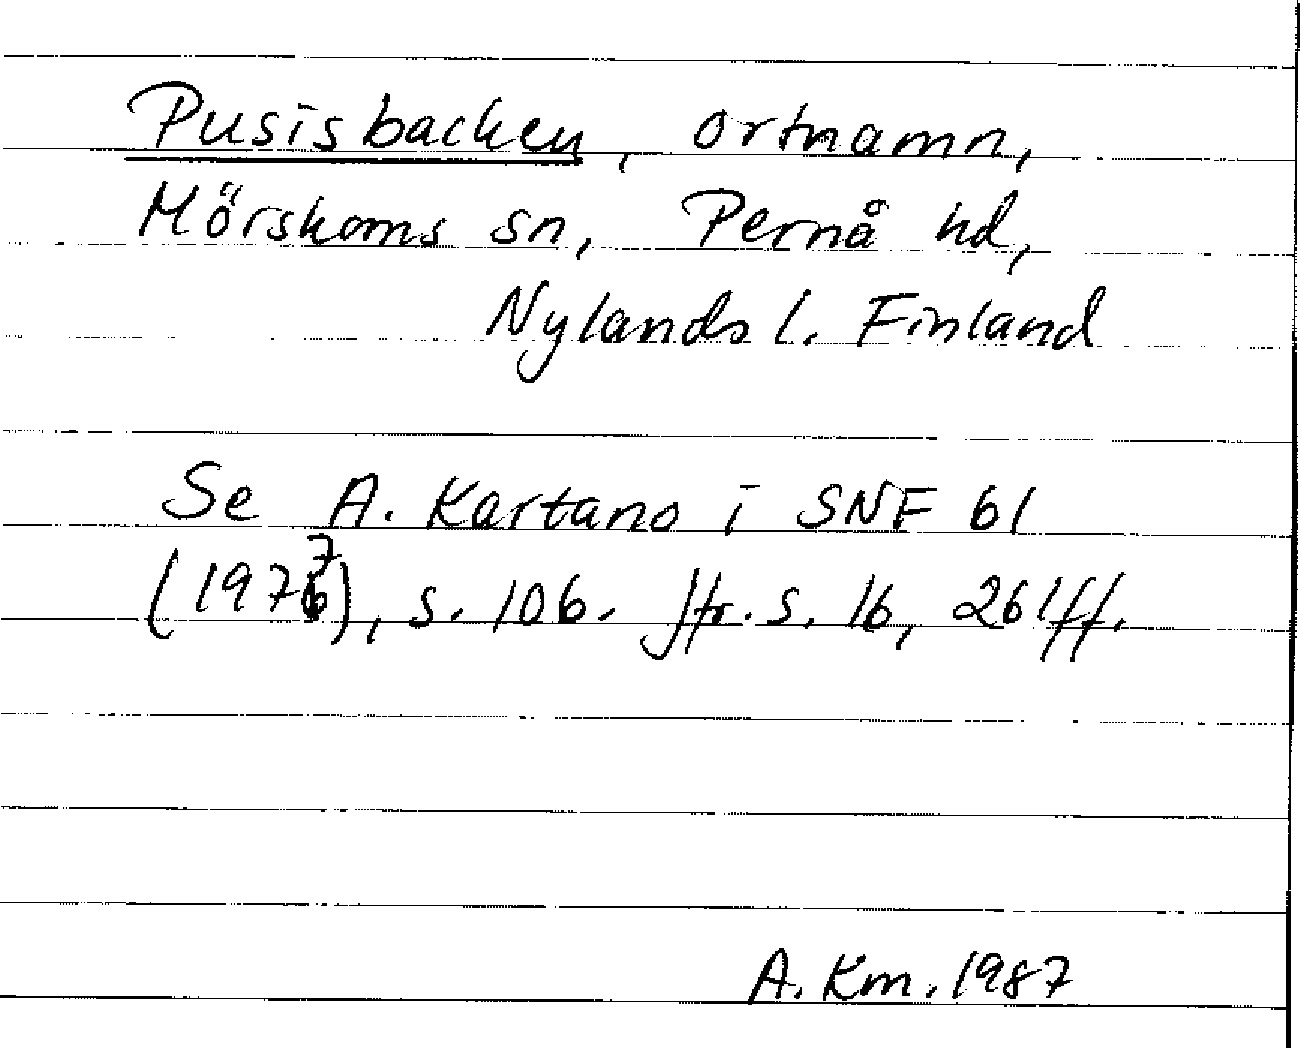 Pusisbacken, ortnamn,
Mörskoms sn, Pernå hd,
Nylands l. Finland
Se A. Kartano i SNF 61
(1977), s. 106. Jfr. s. 16, 261ff.
A. Km. 1987